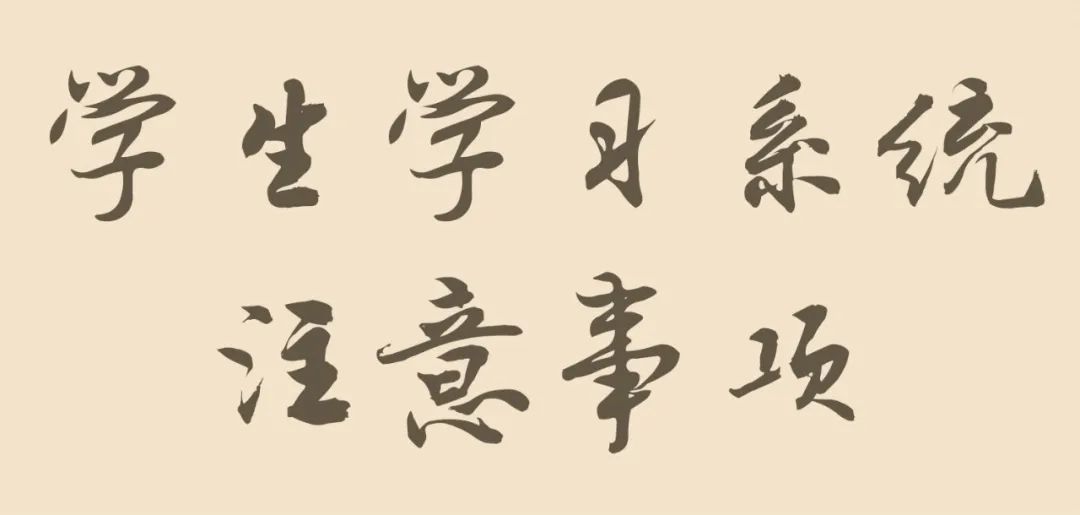 学生学习系统
注意事项